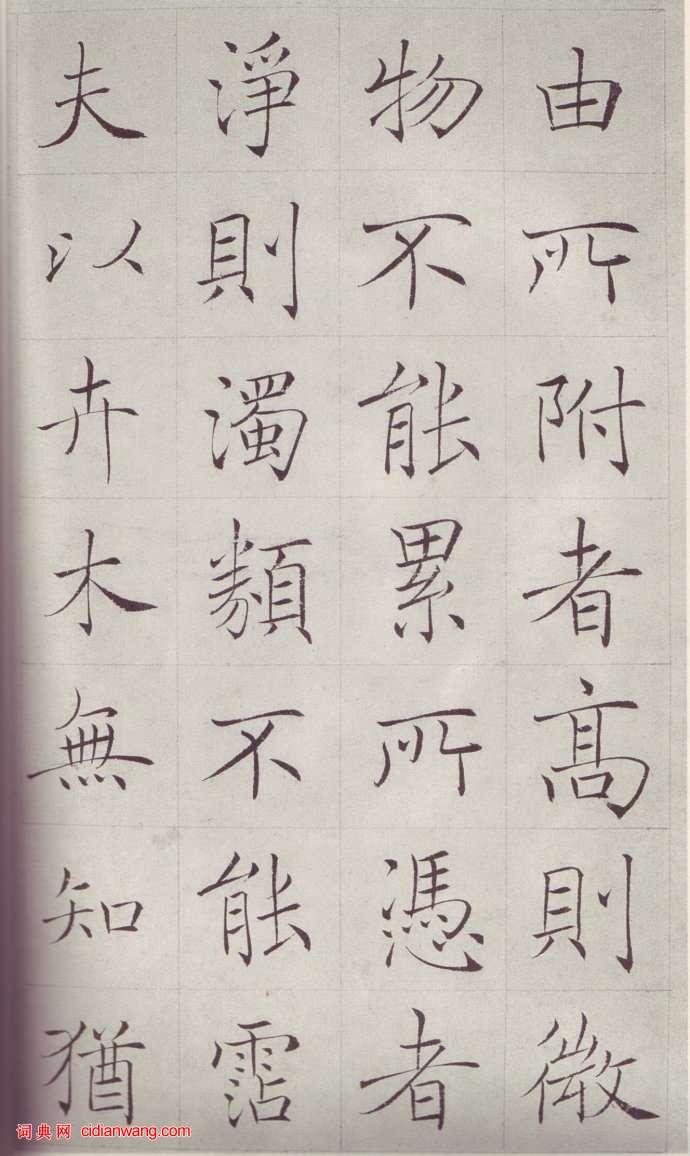 由所附者高則微
物不能累所憑者
淨則濁類不能霑
夫以卉木無知猶
词典网 cidianwang.com